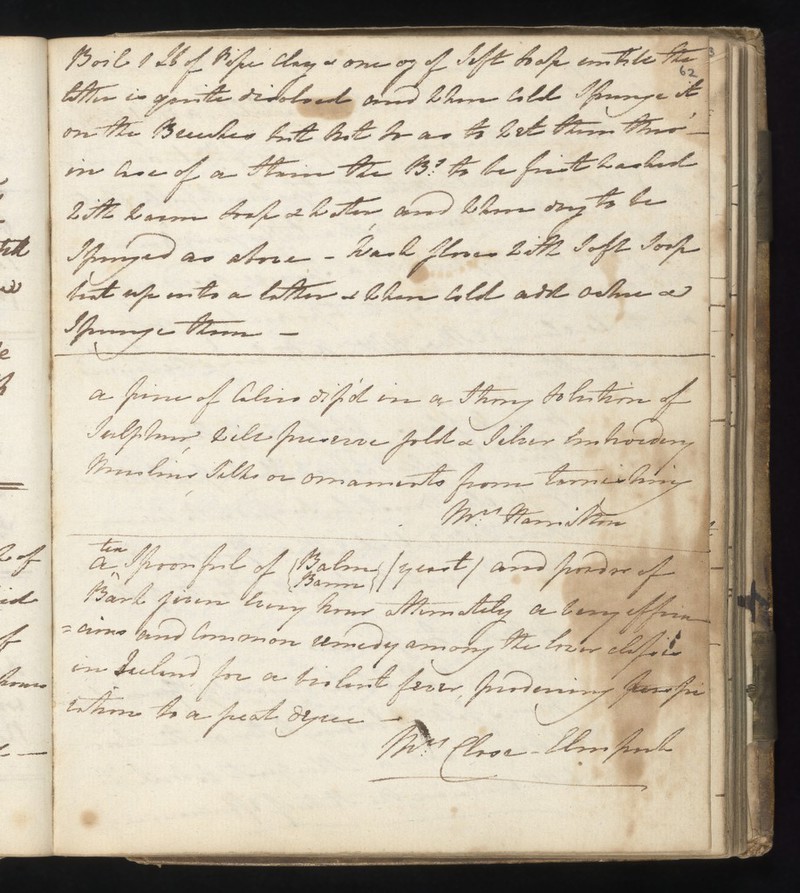 3
62
Boil 1 lb of Pipe Clay & one oz of Soft Soap untill the
latter is quite disolved and when Cold Spunge it
on the Breeches but not so as to Wet them thro' –
in Case of a Stain the Bs. to be first washed
with warm Soap & Water, and when dry to be
Spunged as above – Wash gloves with Soft Soap
beat up into a lather & when Cold add Ochre &
Spunge them –
a piece of Calico dip'd in a Strong Solution of
Sulphur, will preserve gold & Silver Embroidery
Muslins, Silks or ornaments from tarnishing
Mrs Hamilton
a tea Spoonful of {Balm Barm} (yeast) and powder of
Bark given Every hour alternately a very effica
=cious and Common remedy among the lower classes
in Ireland for a violent fever, producing perspi
ration to a great degree –
Mrs Close – Elm Park